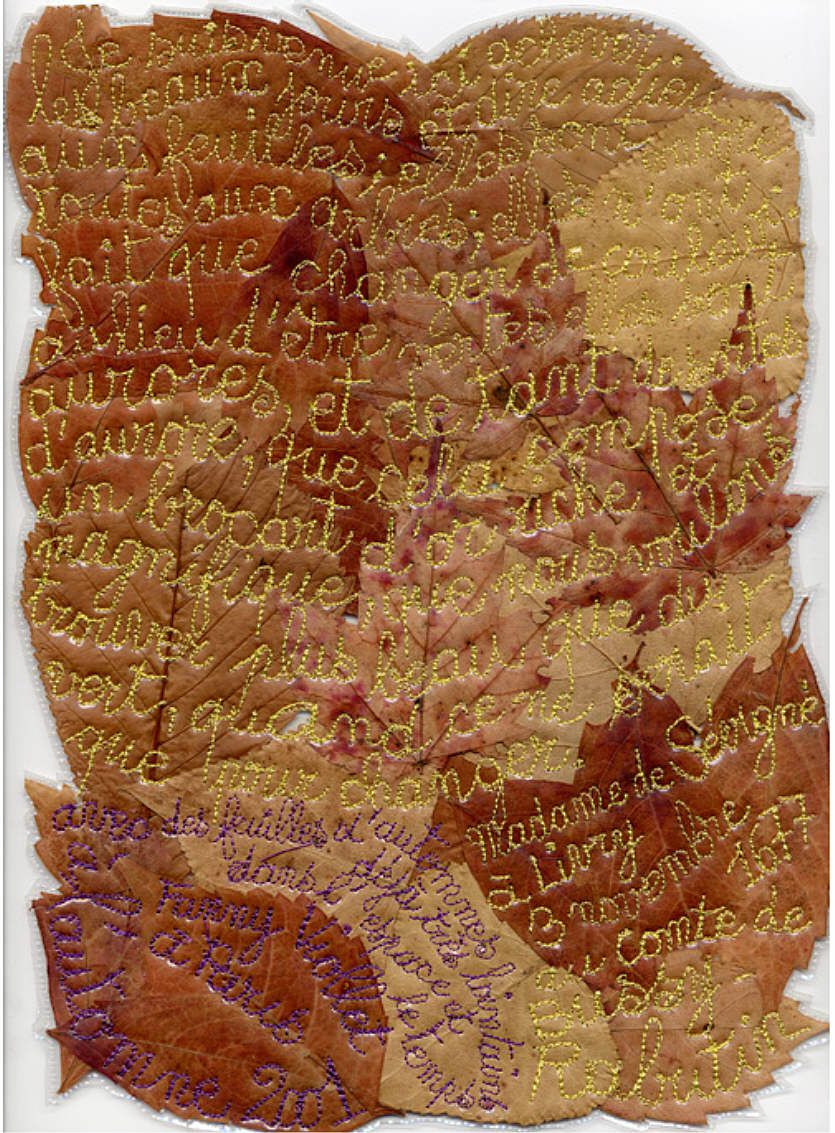 Je suis venue ici achever
les beaux jours & dire adieu
aux feuilles; elles sont
toutes aux arbres; elles n'ont
fait que changer de couleur:
au lieu d'être vertes elles sont
aurores, et de tant de sortes
d'aurore, que cela compose
un brocart d'or riche et
magnifique, que nous voulons
trouver plus beau que du
vert, quand ce ne serait
que pour changer.
madame de Sévigné
à Livry
3 novembre 1677
au comte de
Bussy-
Rabutin
avec des feuilles d'automnes
déjà très lointains
dans l'espace et
le temps
par Fanny Viollet
à Paris
automne